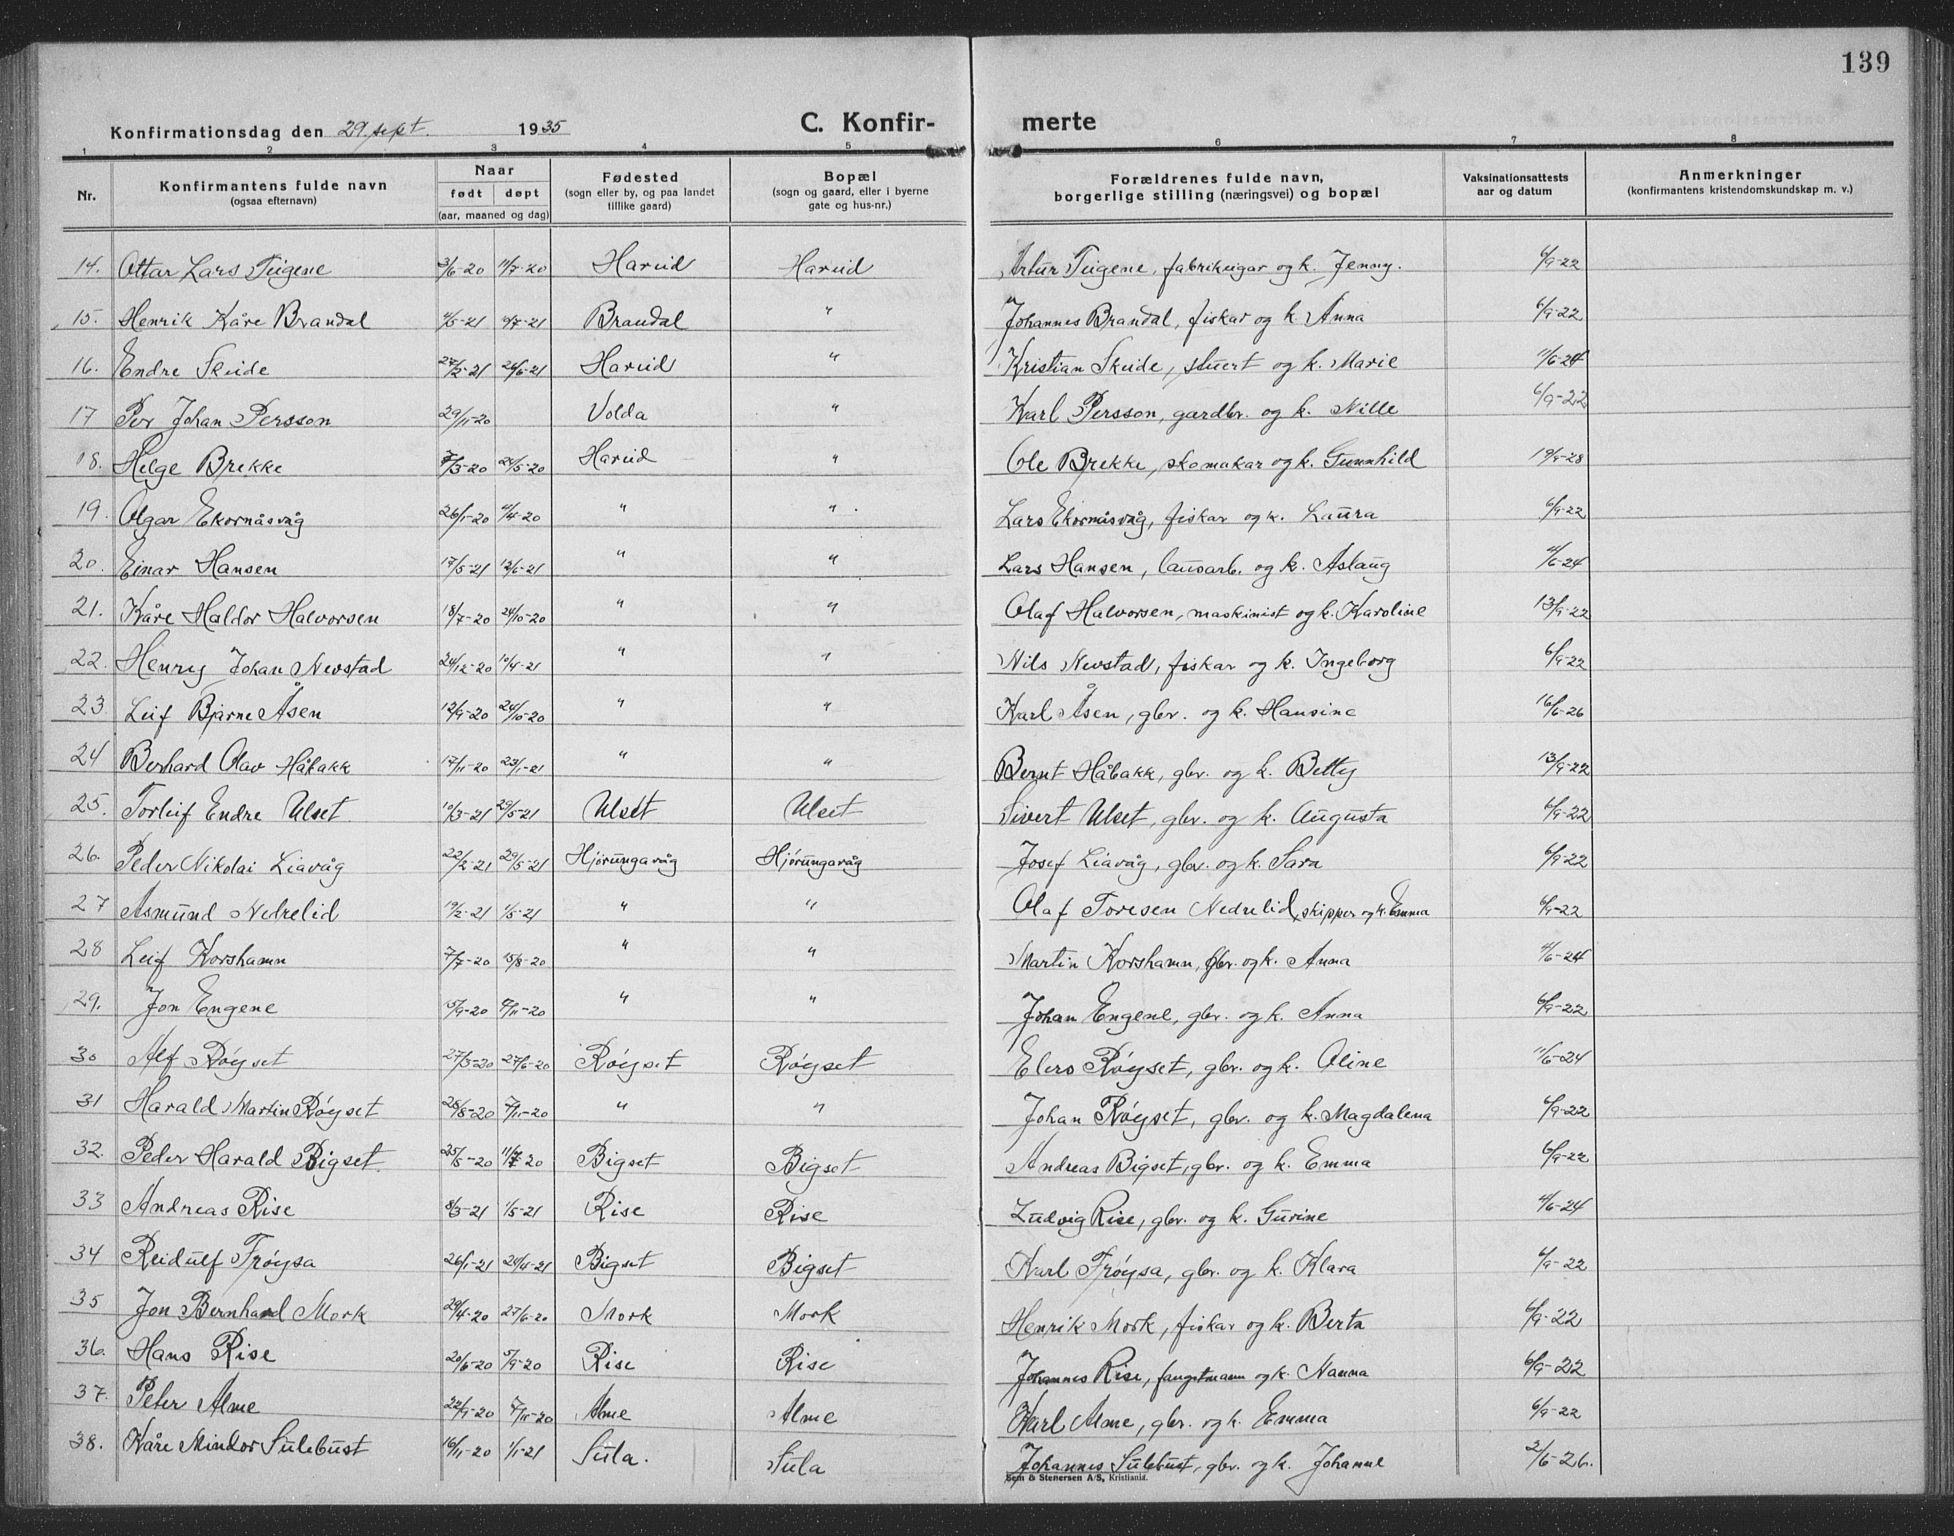 139
Konfirmationsdag den 29. sept. 1935
C. Konfir- merte
1 2 3 4 5 6 7 8
Nr. | Konfirmantens fulde navn (ogsaa efternavn) | Naar født døpt (aar, maaned og dag) | Fødested (sogn eller by, og paa landet tillike gaard) | Bopæl (sogn og gaard, eller i byerne gate og hus-nr.) | Forældrenes fulde navn, borgerlige stilling (næringsvei) og bopæl | Vaksinationsattests aar og datum | Anmerkninger (konfirmantens kristendomskundskap m. v.)
14. Ottar Lars Teigene 3/6-20 11/7-20 Hareid Hareid Artur Teigene, fabrikeigar og k. Jenny. 6/9-22
15. Henrik Kåre Brandal /5-21 /7-21 Brandal " Johannes Brandal, fiskar og k. Anna 6/9-22
16. Endre Skeide 27/2-21 26/6-21 Hareid " Kristian Skeide, stuert og k. Marie 11/6-24
17 Per Johan Persson 29/11-20 Volda " Karl Persson, gardbr. og k. Nille 6/9-22
18. Helge Brekke 7/3-20 24/5-20 Hareid " Ole Brekke, skomakar og k. Gunnhild 19/9-28
19. Olgar Ekornåsvåg 26/1-20 4/4-20 " " Lars Ekornåsvåg, fiskar og k. Laura 6/9-22
20. Einar Hansen 17/5-21 12/6-21 " " Lars Hansen, lausarb. og k. Aslaug 4/6-24
21. Kåre Haldor Halvorsen 18/7-20 24/10-20 " " Olaf Halvorsen, maskinist og k. Karoline 13/9-22
22. Henry Johan Nevstad 24/12-20 10/4-21 " " Nils Nevstad, fiskar og k. Ingeborg 6/9-22
23 Leif Bjarne Åsen 12/9-20 24/10-20 " " Karl Åsen, gbr. og k. Hansine 16/6-26
24 Berhard Olav Håbakk 17/11-20 23/1-21 " " Bernt Håbakk, gbr. og k. Betty 13/9-22
25. Torleif Endre Ulset 10/3-21 29/5-21 Ulset Ulset Sivert Ulset, gbr. og k. Augusta 6/9-22
26. Peder Nikolai Liavåg 22/2-21 29/5-21 Hjørungavåg Hjørungavåg Josef Liavåg, gbr. og k. Sara 6/9-22
27 Asmund Nedrelid 19/2-21 1/5-21 " " Olaf Toresen Nedrelid, skipper og k. Emma 6/9-22
28 Leif Korshamn 7/7-20 15/8-20 " " Martin Korshamn, gbr. og k. Anna 4/6-24
29. Jon Engene 15/9-20 /11-20 " " Johan Engene, gbr. og k. Anna 6/9-22
30 Alf Røyset 27/3-20 27/6-20 Røyset Røyset Elers Røyset, gbr. og k. Oline 11/6-24
31 Harald Martin Røyset 28/8-20 7/11-20 " " Johan Røyset, gbr. og k. Magdalena 6/9-22
32. Peder Harald Bigset 25/5-20 11/7-20 Bigset Bigset Andreas Bigset, gbr. og k. Emma 6/9-22
33 Andreas Rise 8/3-21 1/5-21 Rise Rise Ludvig Rise, gbr. og k. Gurine 4/6-24
34 Reidulf Frøysa 26/1-21 24/4-21 Bigset Bigset Karl Frøysa, gbr. og k. Klara 6/9-22
35 Jon Bernhard Mork 29/4-20 27/6-20 Mork Mork Henrik Mork, fiskar og k. Berta 6/9-22
36. Hans Rise 20/6-20 5/9-20 Rise Rise Johannes Rise, fangstmann og k. Nanna 6/9-22
37. Peter Alme 22/9-20 7/11-20 Alme Alme Karl Alme, gbr. og k. Emma 6/9-22
38. Kåre Mindor Sulebust 16/11-20 1/1-21 Sula. Sula Johannes Sulebust, gbr. og k. Johanne 2/6-26.
Sem & Stenersen A/S, Kristiania.